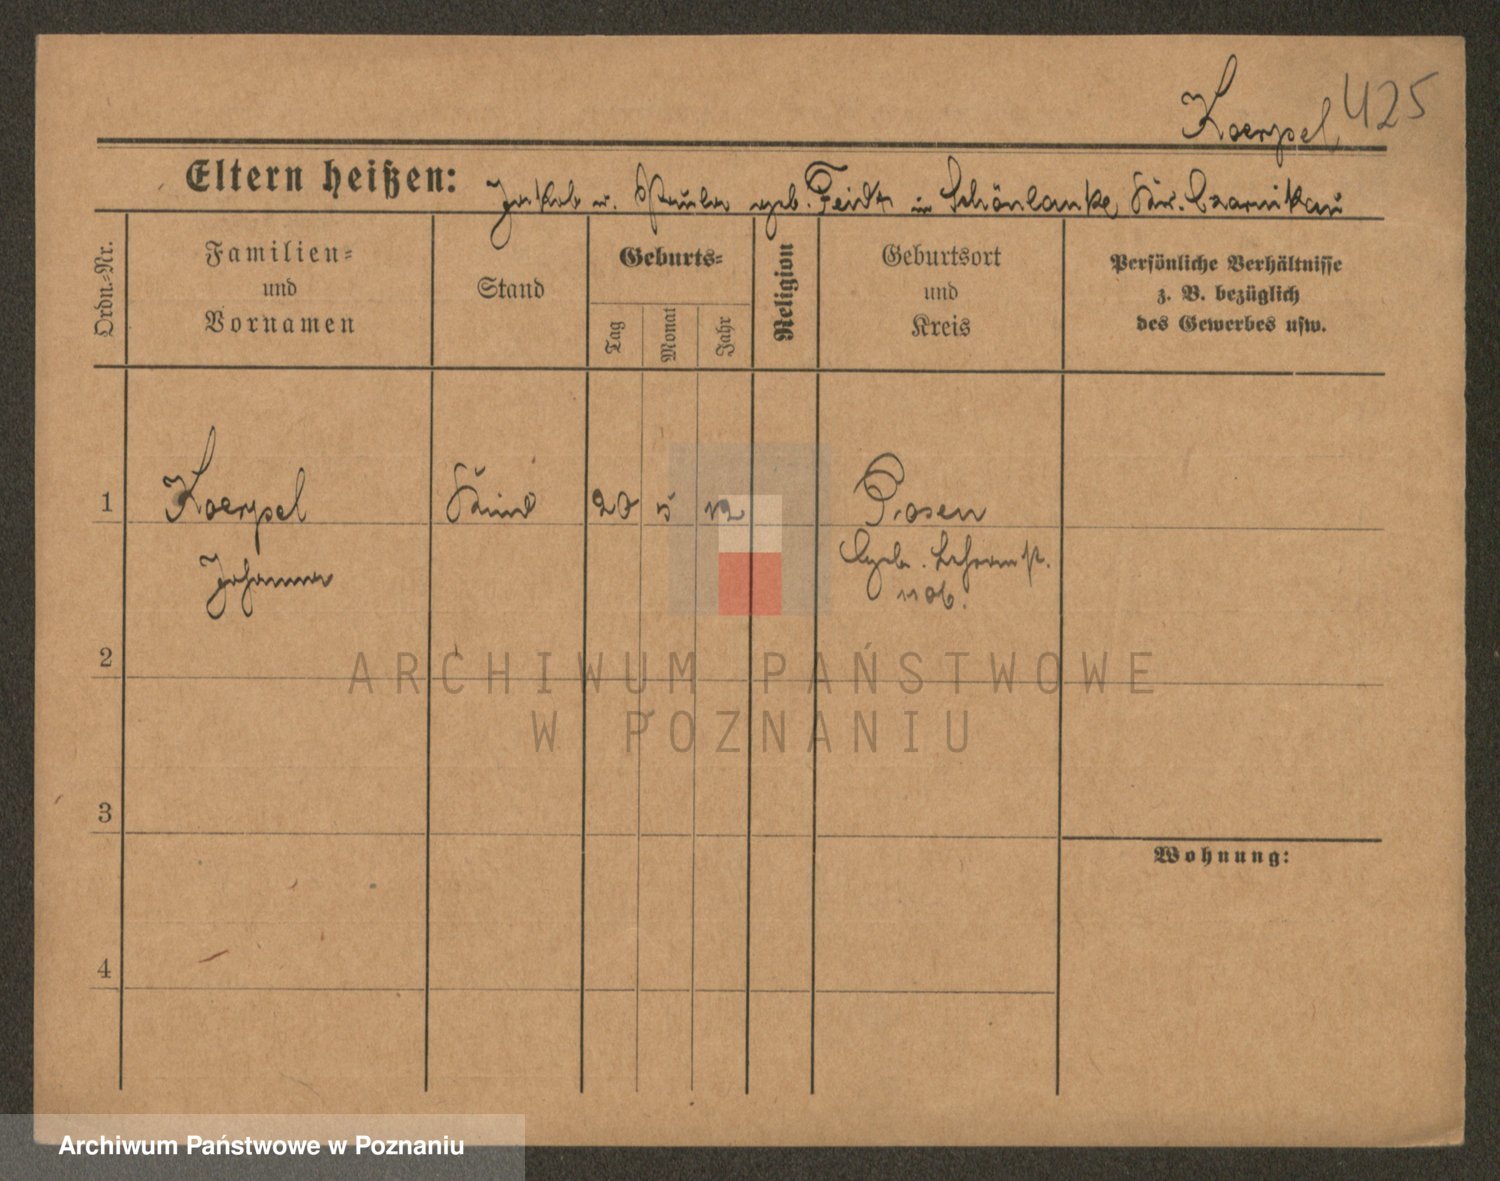 Koerpel 425
Eltern heißen: Jakob u. Paula geb. Feidt in Schönlanke, Kr. Czarnikau
Ordn.-Nr.
Familien-
und
Vornamen
Stand
Geburts-
Tag
Monat
Jahr
Religion
Geburtsort
und
Kreis
Persönliche Verhältnisse
z. B. bezüglich
des Gewerbes usw.
1 Koerpel Kind 20 5 12 Posen
Johanna
2
3
4
Wohnung:
ARCHIWUM PAŃSTWOWE
W POZNANIU
Archiwum Państwowe w Poznaniu